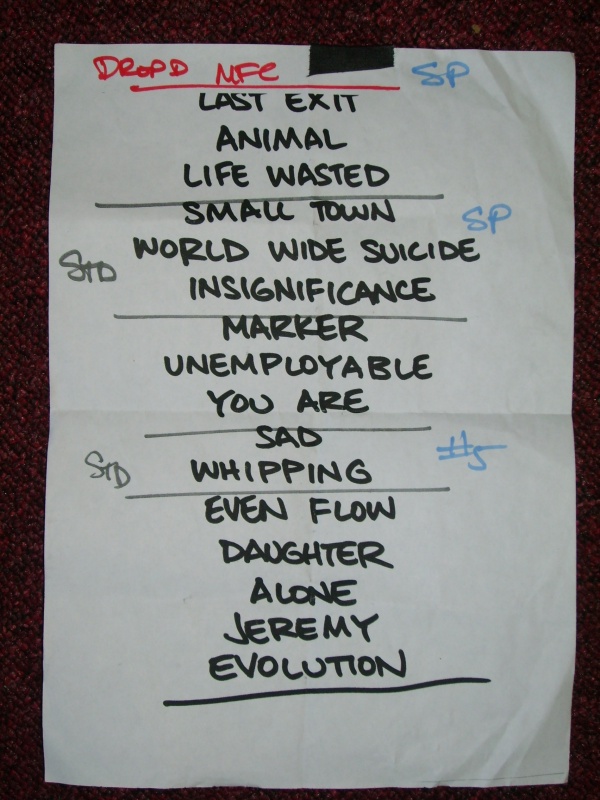 DROP D MFC
SP
LAST EXIT
ANIMAL
LIFE WASTED
SMALL TOWN
SP
WORLD WIDE SUICIDE
STD
INSIGNIFICANCE
MARKER
UNEMPLOYABLE
YOU ARE
SAD
#5
STD
WHIPPING
EVEN FLOW
DAUGHTER
ALONE
JEREMY
EVOLUTION